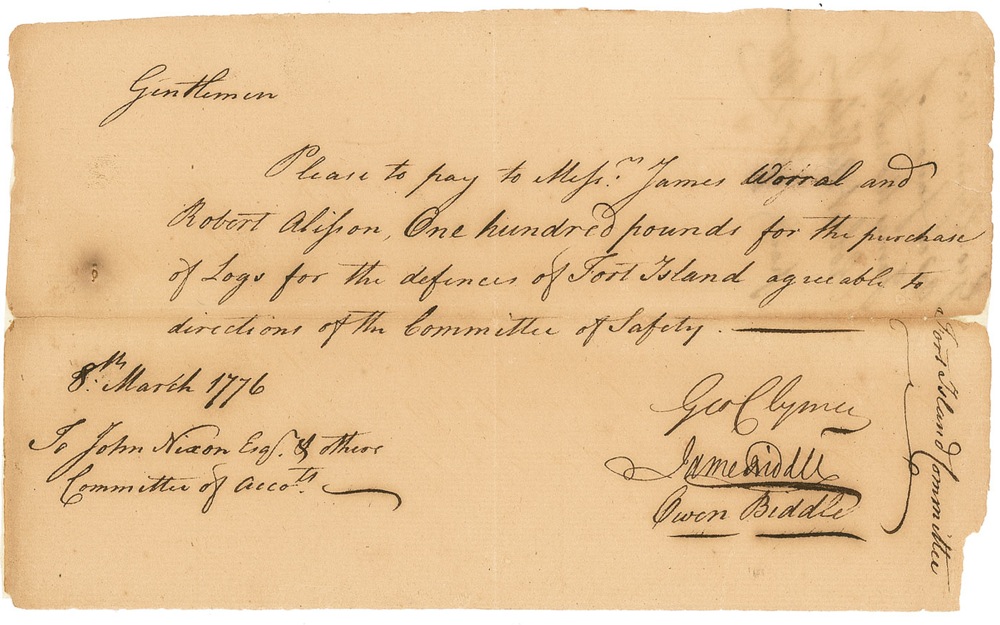 Gentlemen
Please to pay to Messrs. James Worral and
Robert Alisson, One hundred pounds for the purchase
of Logs for the defences of Fort Island agreeable to
directions of the Committee of Safety.
8th. March 1776
To John Nixon Esqr. & others
Committee of Accots.
Geo Clymer
James Biddle
Owen Biddle
Fort Island Committee